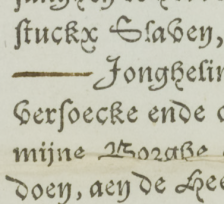 stuckx Slaven,
Jonghelin
versoecke ende
mijne Borghe
doen, aen de Hee